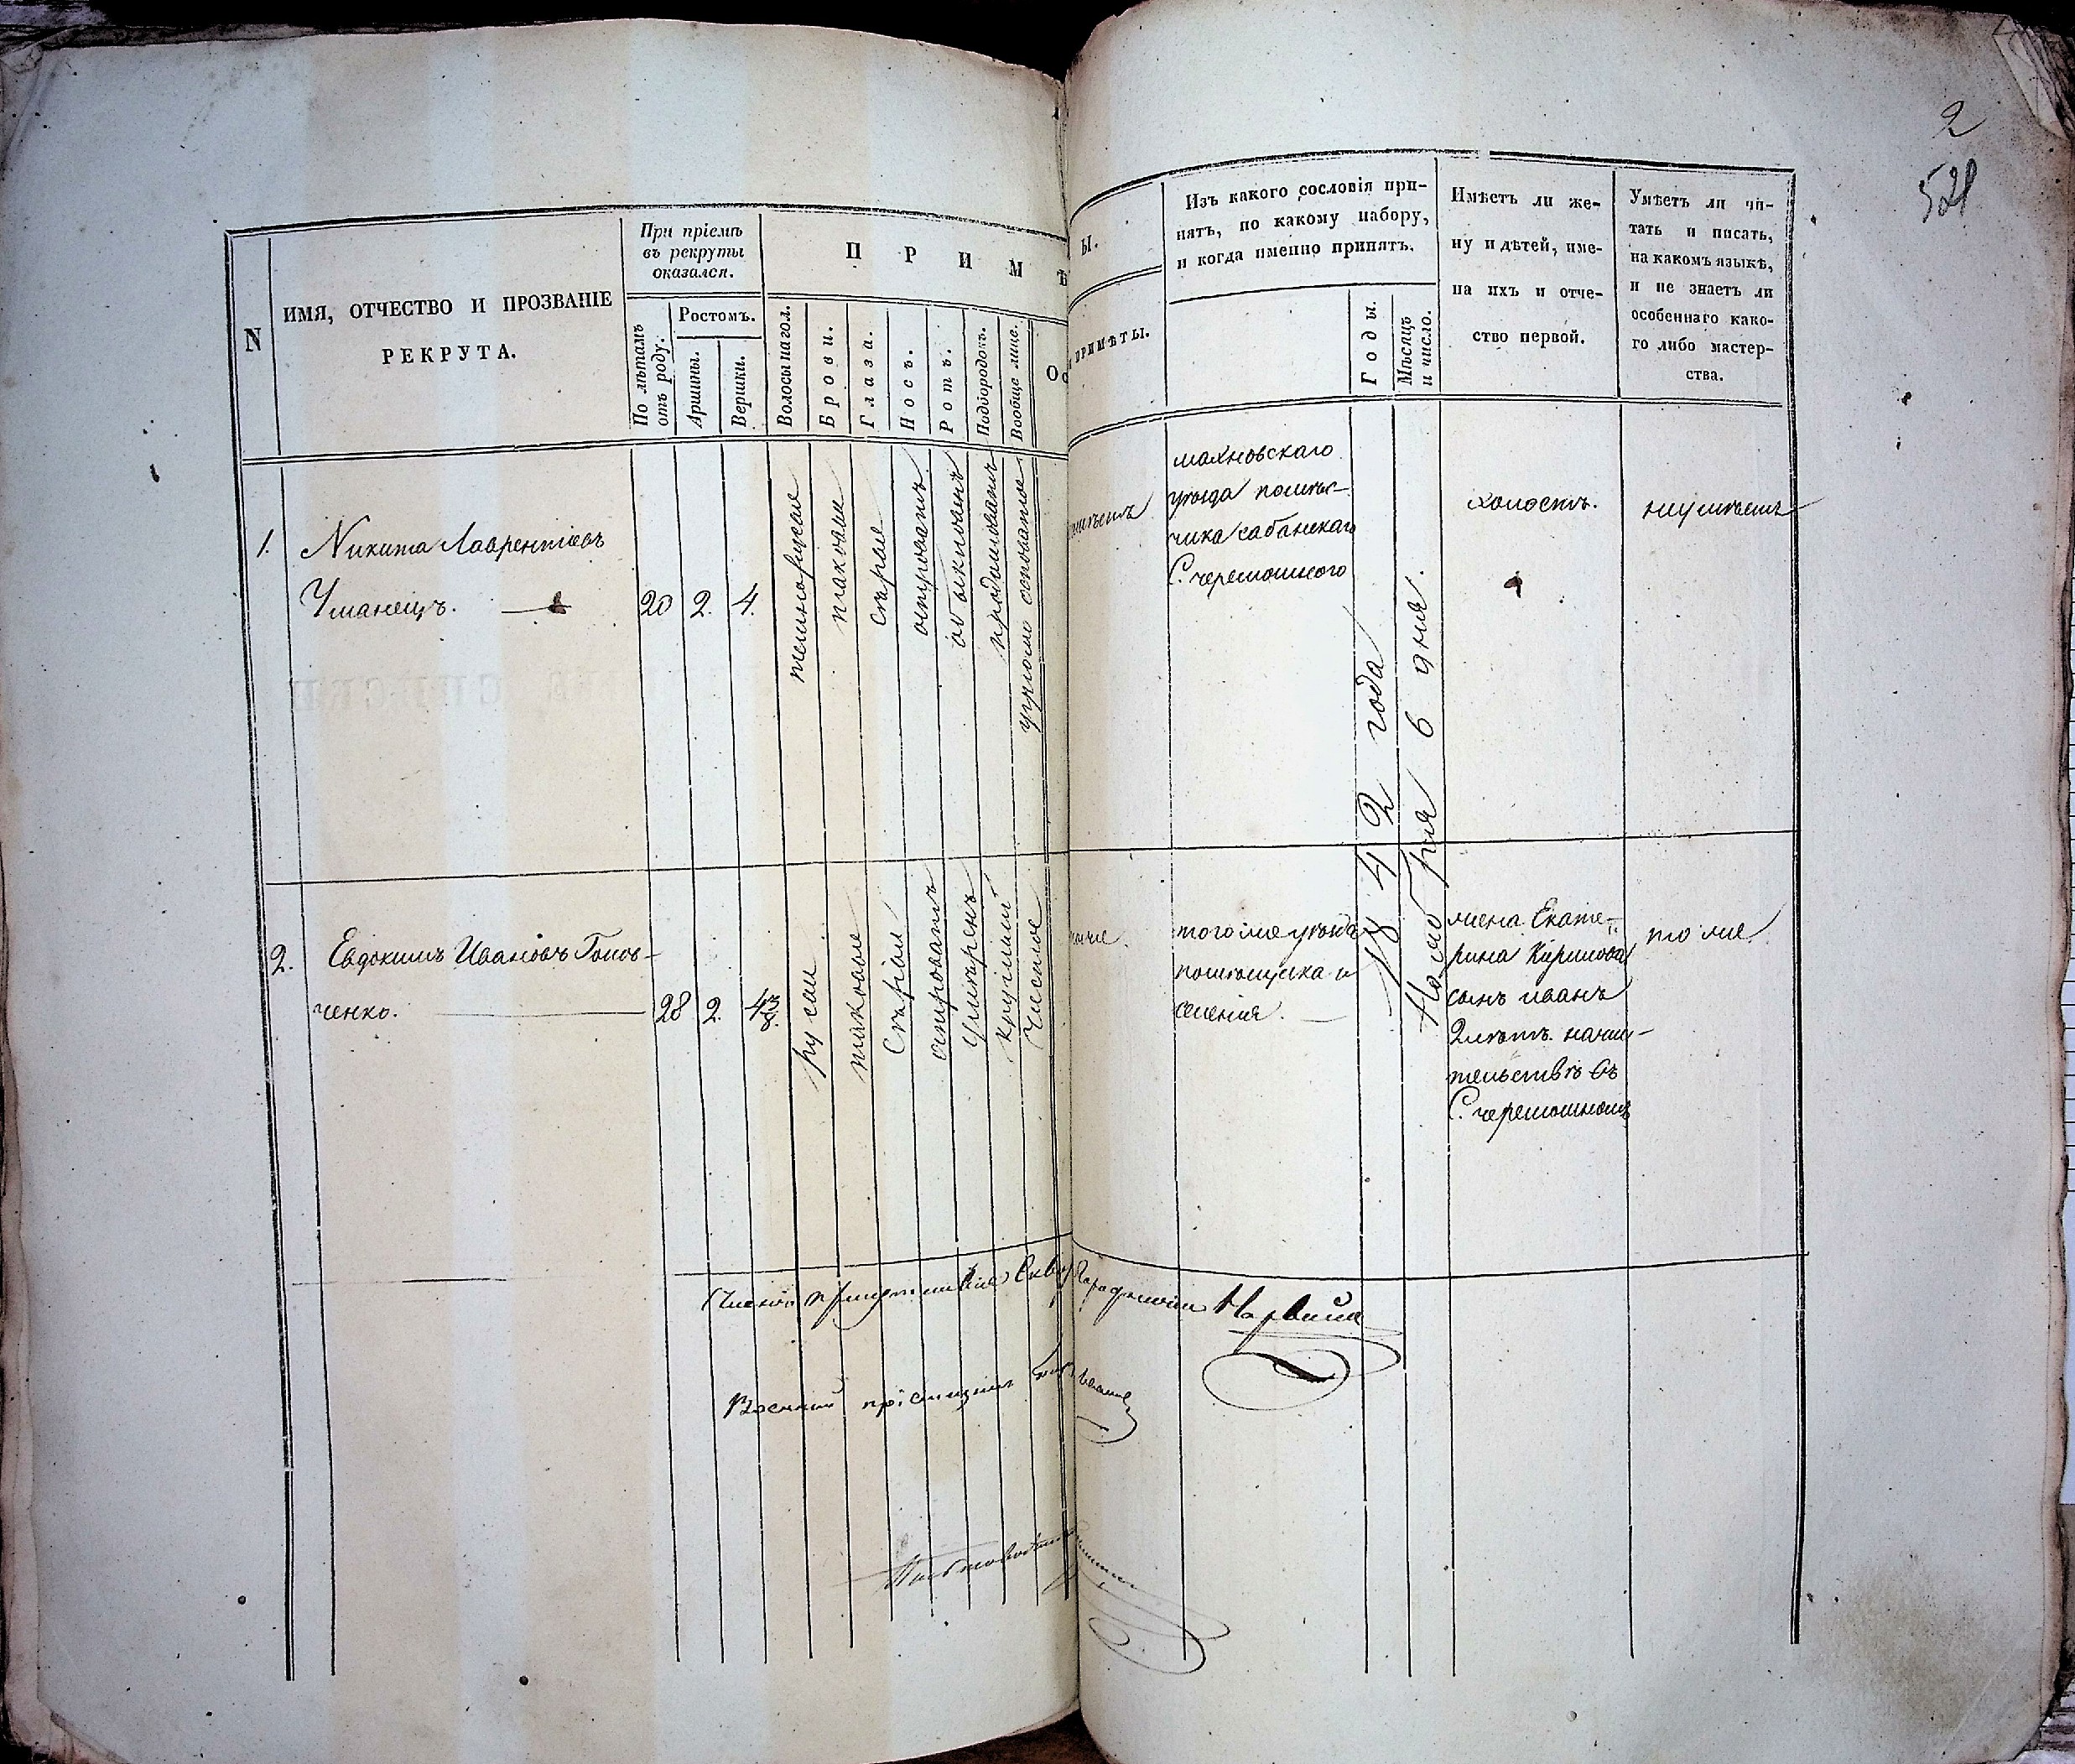 2
521
N
ИМЯ, ОТЧЕСТВО И ПРОЗВАНІЕ
РЕКРУТА.
При пріемѣ
въ рекруты
оказался.
По лѣтамъ
отъ роду.
Ростомъ.
Аршины.
Вершки.
П Р И М Ѣ
Волосы на гол.
Брови.
Глаза.
Носъ.
Ротъ.
Подбородокъ.
Вообще лице.
Ос
Ы.
ПРИМѢТЫ.
Изъ какого сословія при-
нятъ, по какому набору,
и когда именно принятъ.
Годы.
Мѣсяцъ
и число.
Имѣетъ ли же-
ну и дѣтей, име-
на ихъ и отче-
ство первой.
Умѣетъ ли чи-
тать и писать,
на какомъ языкѣ,
и не знаетъ ли
особеннаго како-
го либо мастер-
ства.
1.
Никита Лаврентіевъ
Уманецъ.
20
2.
4.
темнорусые
таковые
сѣрые
обыкновенъ
махновскаго
уѣзда помѣс-
чика сабанскаго
С. черемошного
1842 года
Ноября 6 дня.
холостъ.
неумѣетъ
2.
Евдокимъ Ивановъ Голов-
ченко.
28
2.
4 3/8.
русые
таковые
Сѣрыи
умѣренъ
круглый
Чистое
тогоже уѣзда
помѣщика и
селенія.
жена Екате-
рина Кирилова
сынъ иванъ
2 лѣтъ. нажи-
тельствѣ въ
С. черемошномъ
тоже
Военный пріемщикъ